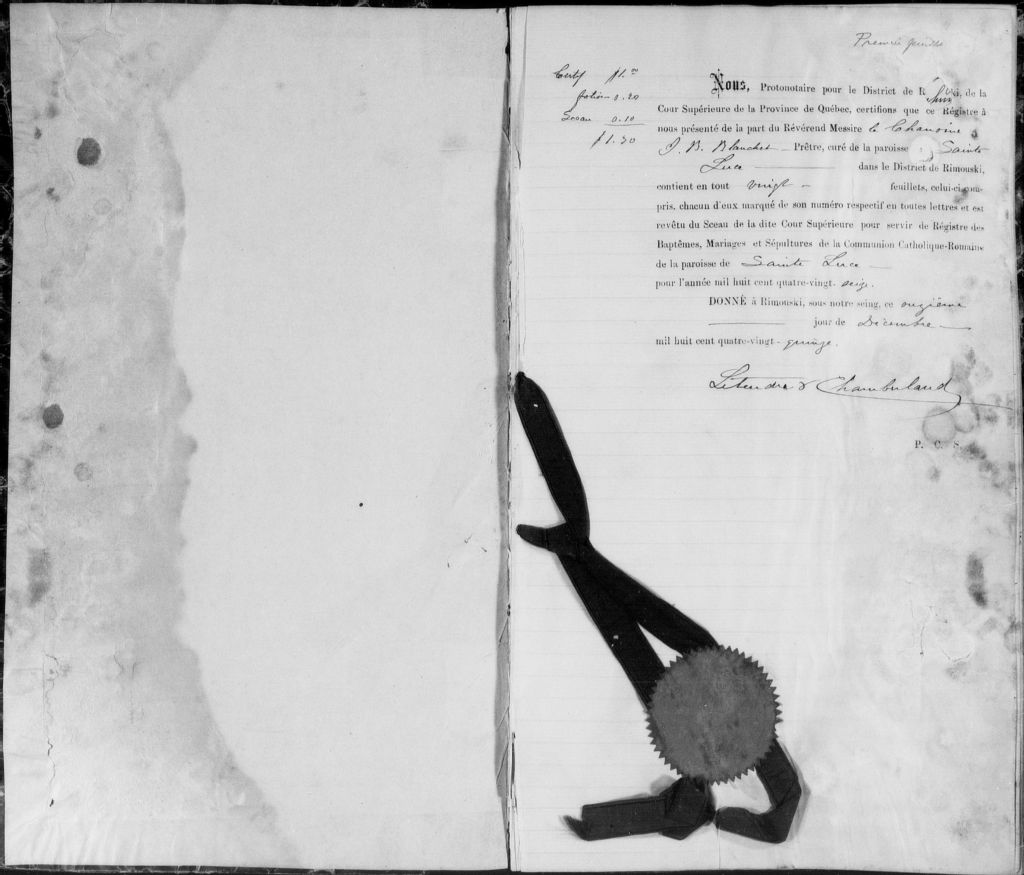 Première feuille
Certif $1.00
0.20
Sceau 0.10
$1.30
Nous, Protonotaire pour le District de R , de la
Cour Supérieure de la Province de Québec, certifions que ce Régistre à
nous présenté de la part du Révérend Messire le Chanoine
J. B. Blanchet Prêtre, curé de la paroisse Sainte
Luce dans le District de Rimouski,
contient en tout vingt feuillets, celui-ci com-
pris, chacun d'eux marqué de son numéro respectif en toutes lettres et est
revêtu du Sceau de la dite Cour Supérieure pour servir de Régistre des
Baptêmes, Mariages et Sépultures de la Communion Catholique-Romaine
de la paroisse de Sainte Luce
pour l'année mil huit cent quatre-vingt-seize.
DONNÉ à Rimouski, sous notre seing, ce onzième
jour de Décembre
mil huit cent quatre-vingt-quinze.
Létendre & Chamberland
P. C. S.